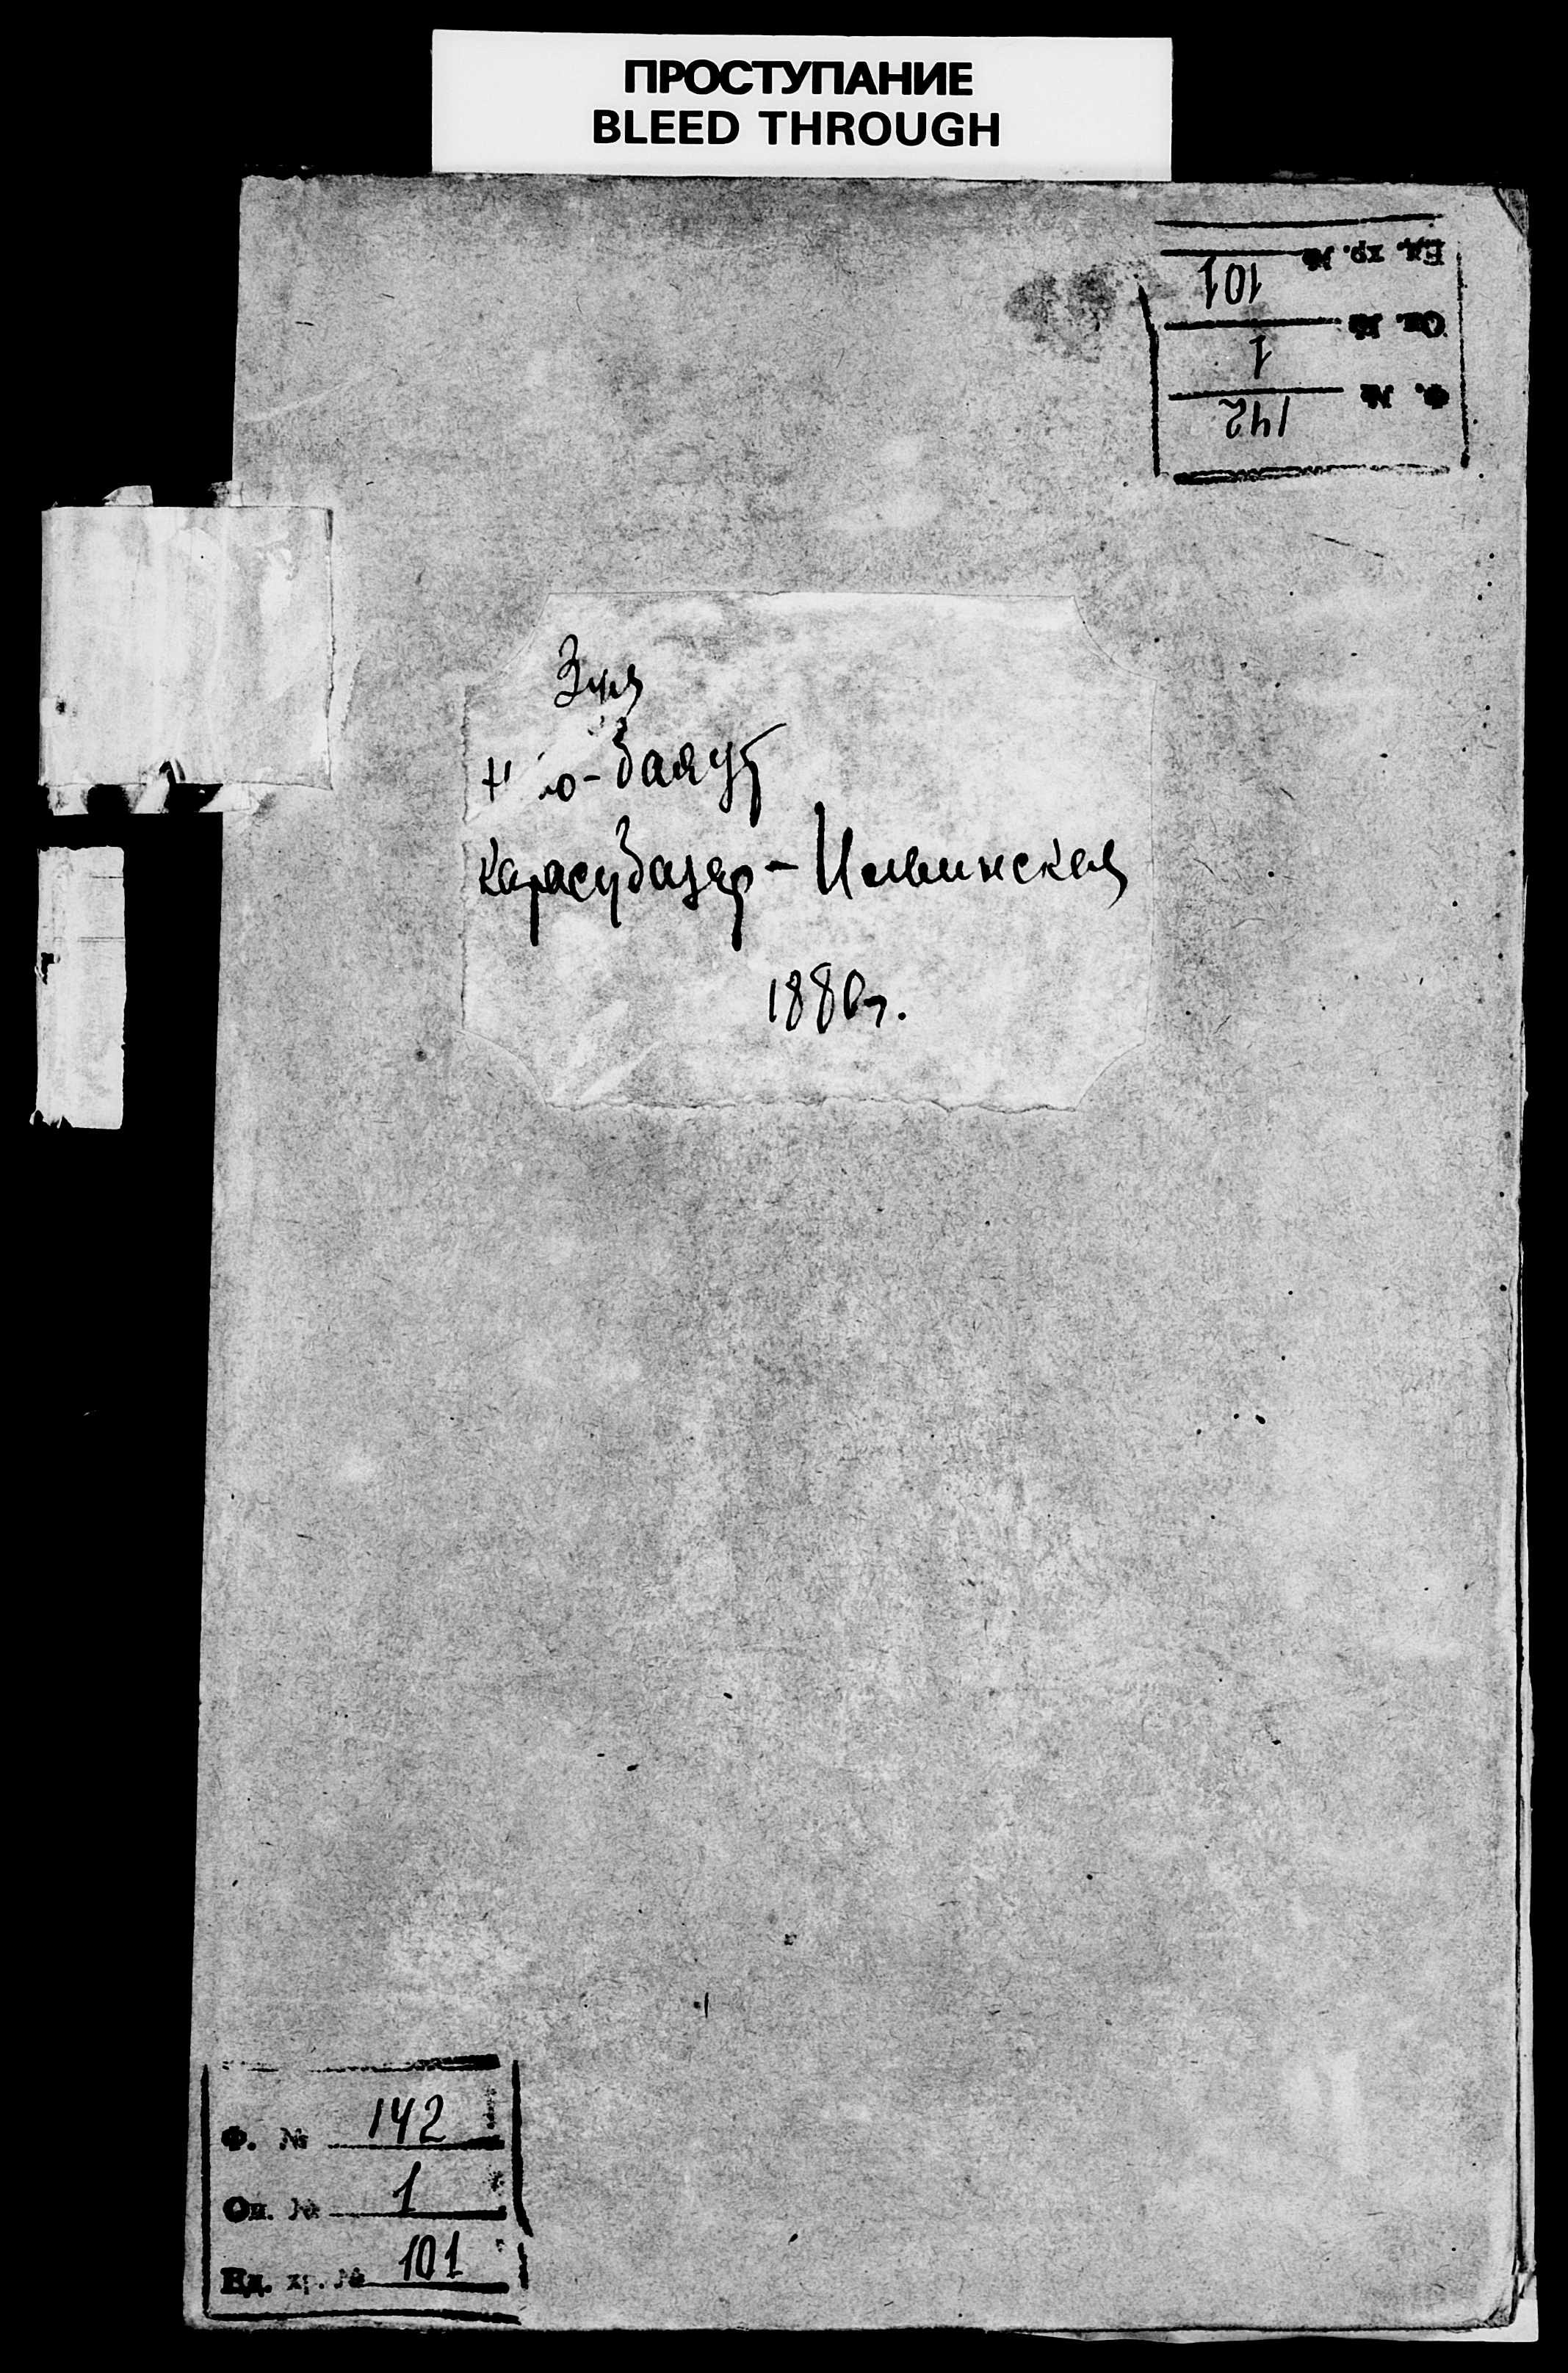 ПРОСТУПАНИЕ
BLEED THROUGH
Ед. хр. № 101
Оп. № 1
Ф. № 142
Зуя
Баяут
Карасубазар - Ильинская
1880г.
Ф. № 142
Оп. № 1
Ед. хр. № 101